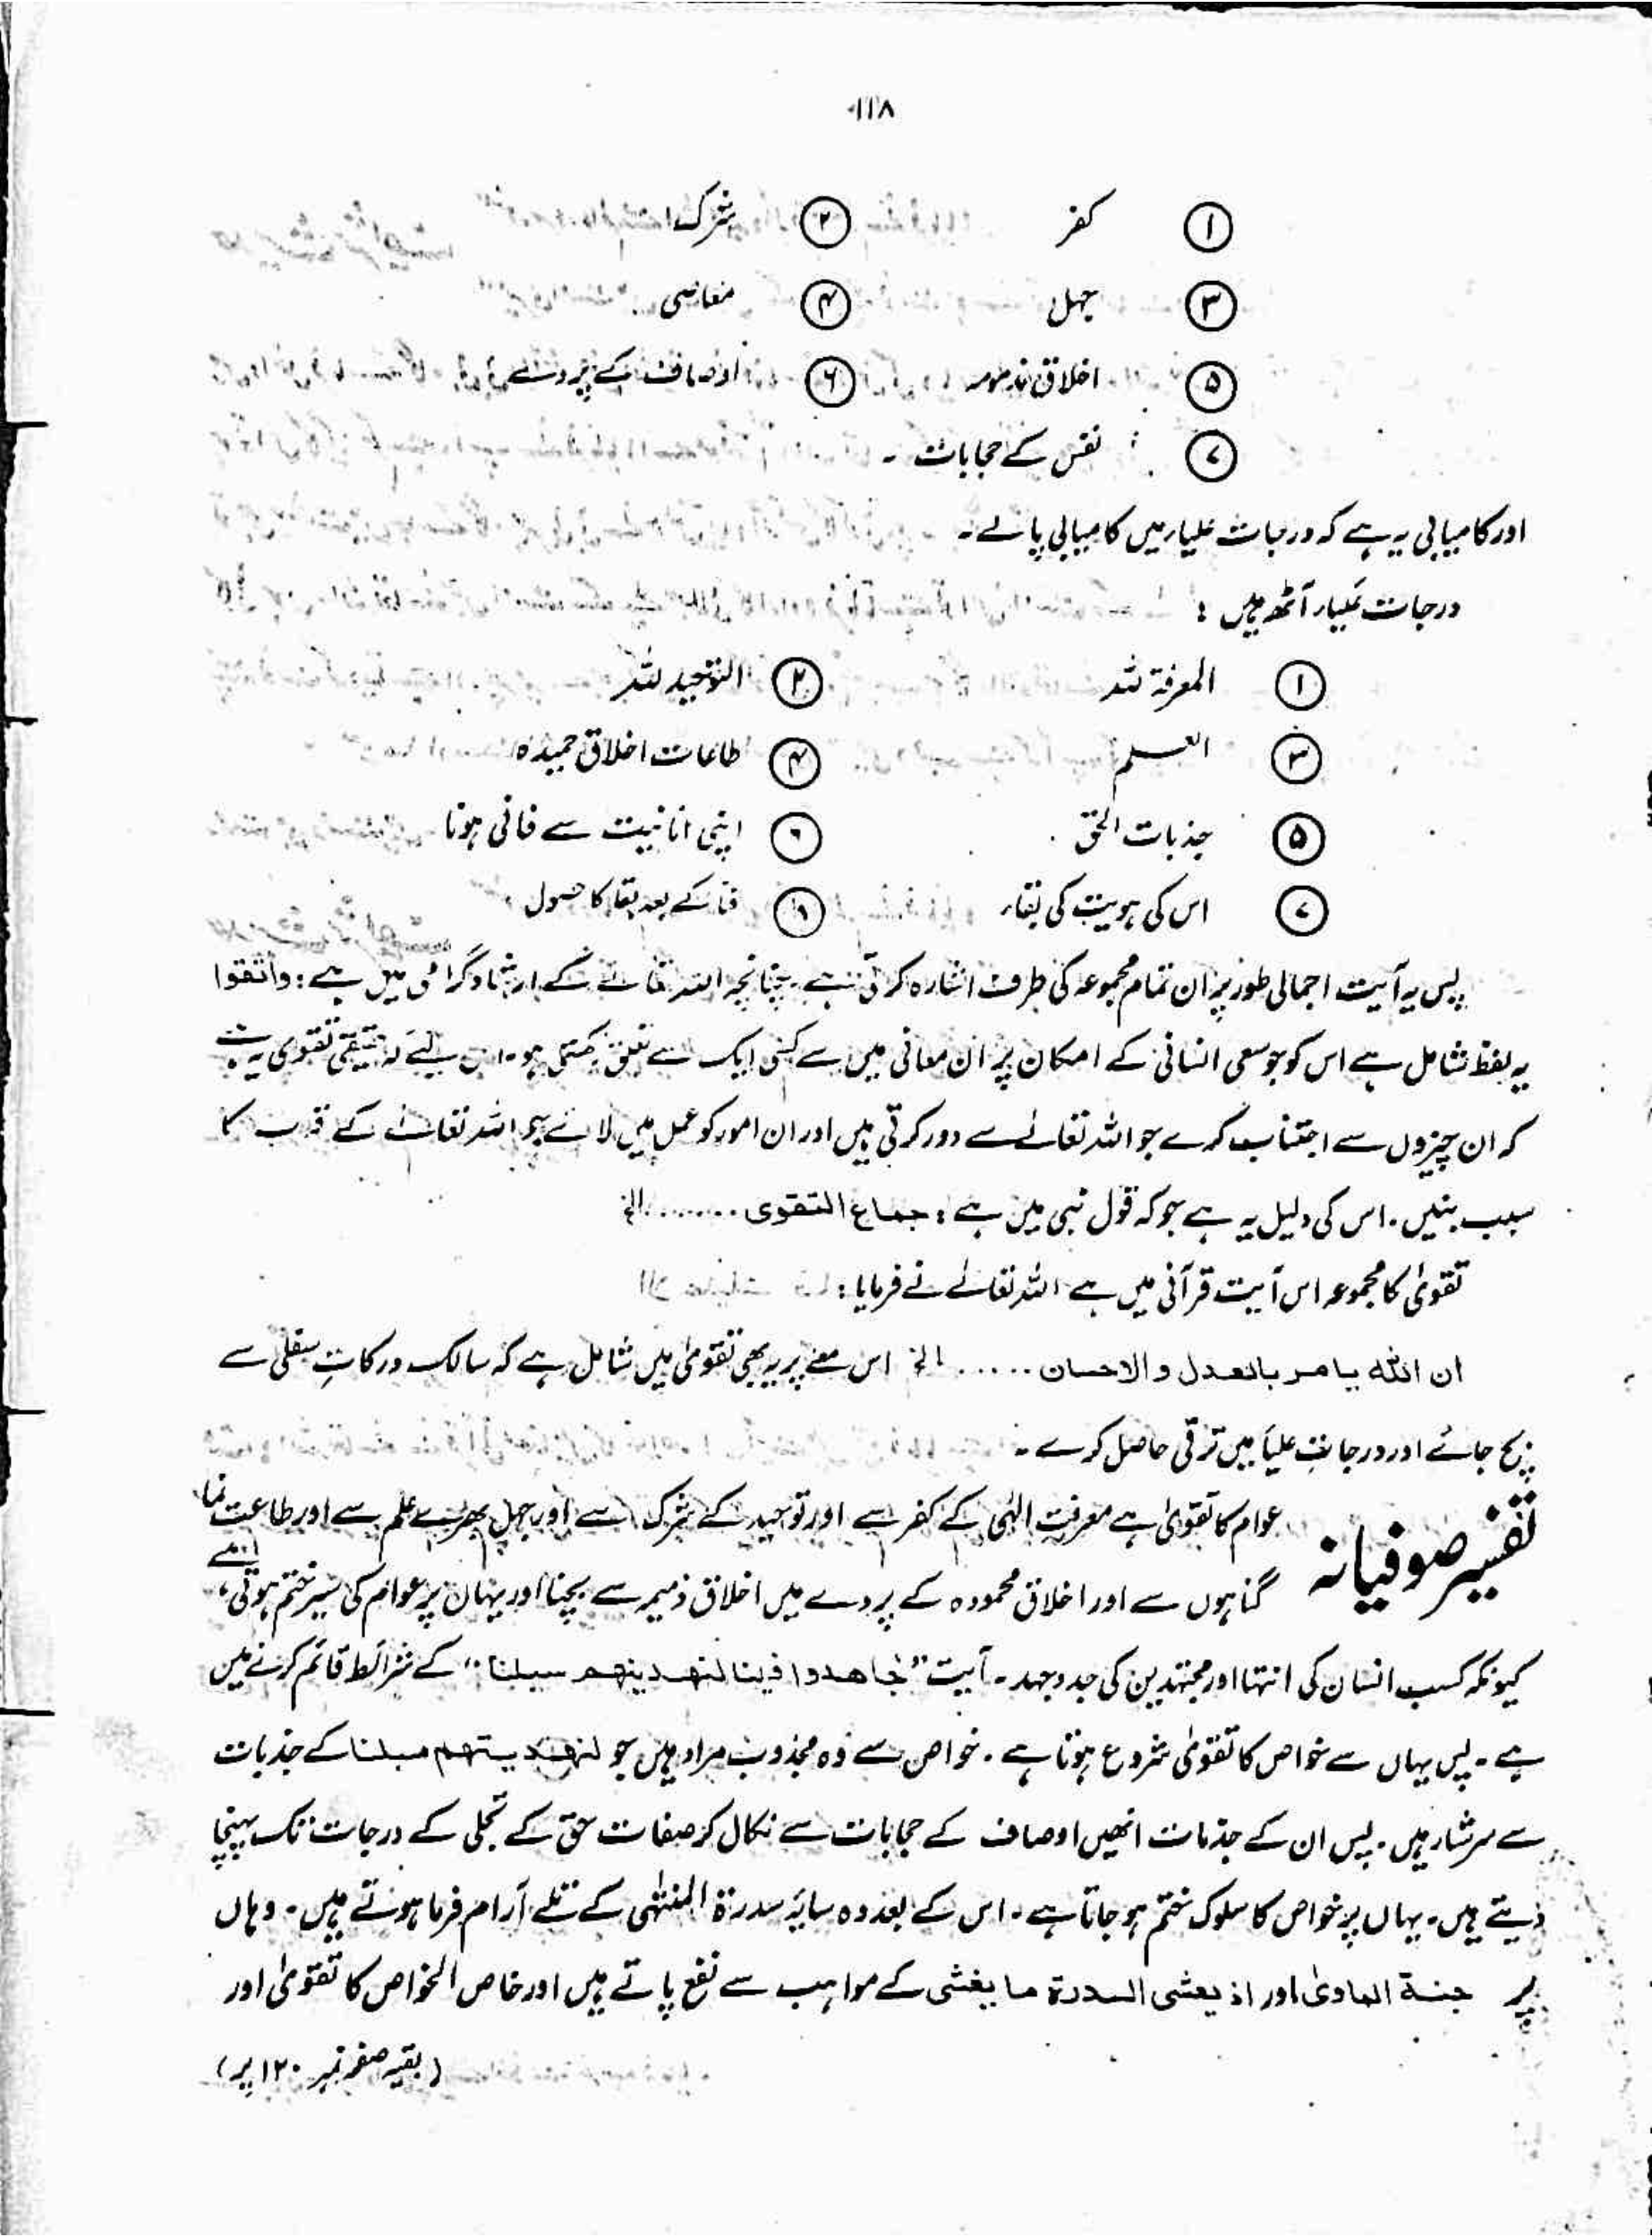 ۱۱۸
① کفر ② شرک
③ جہل ④ معاصی
⑤ اخلاق مذمومہ ⑥ اوصاف کے پردے
⑦ نفس کے حجابات ۔
اور کامیابی یہ ہے کہ درجات علیار میں کامیابی پالے ۔
درجات علیار آٹھ ہیں :
① المعرفۃ للہ ② التوحید للہ
③ العلم ④ طاعات اخلاق حمیدہ
⑤ جذبات الحق ⑥ اپنی انانیت سے فانی ہونا
⑦ اس کی ہویت کی بقاء ⑧ فنا کے بعد بقا کا حصول
پس یہ آیت اجمالی طور پر ان تمام مجموعہ کی طرف اشارہ کرتی ہے ۔ چنانچہ اللہ تعالےٰ کے ارشاد گرامی میں ہے : واتقوا
یہ لفظ شامل ہے اس کو جو سعی انسانی کے امکان پر ان معانی میں سے کسی ایک سے تعلق رکھتی ہو ۔ اس لیے کہ حقیقی تقویٰ یہ ہے
کہ ان چیزوں سے اجتناب کرے جو اللہ تعالےٰ سے دور کرتی ہیں اور ان امور کو عمل میں لائے جو اللہ تعالےٰ کے قرب کا
سبب بنیں ۔ اس کی دلیل یہ ہے جو کہ قول نبی میں ہے : جماع التقوی ........ الخ
تقویٰ کا مجموعہ اس آیت قرآنی میں ہے اللہ تعالےٰ نے فرمایا :
ان اللہ یامر بالعدل والاحسان ...... الخ اس معنے پر یہ بھی تقویٰ میں شامل ہے کہ سالک درکاتِ سفلی سے
بچ جائے اور درجاتِ علیا میں ترقی حاصل کرے ۔
تفسیر صوفیانہ عوام کا تقویٰ ہے معرفتِ الٰہی کے کفر سے اور توحید کے شرک سے اور جہل بھرے علم سے اور طاعت نما
گناہوں سے اور اخلاق محمودہ کے پردے میں اخلاق ذمیمہ سے بچنا اور یہاں پر عوام کی سیر ختم ہوتی ہے ،
کیونکہ کسب انسان کی انتہا اور مجتہدین کی جدوجہد ۔ آیت ” جاھدوا فینا لنھدینھم سبلنا “ کے شرائط قائم کرنے میں
ہے ۔ پس یہاں سے خواص کا تقویٰ شروع ہوتا ہے ۔ خواص سے وہ مجذوب مراد ہیں جو لنھدینھم سبلنا کے جذبات
سے سرشار ہیں ۔ پس ان کے جذبات انھیں اوصاف کے حجابات سے نکال کر صفات حق کے تجلی کے درجات تک پہنچا
دیتے ہیں ۔ یہاں پر خواص کا سلوک ختم ہو جاتا ہے ۔ اس کے بعد وہ سایۂ سدرۃ المنتہٰی کے تلے آرام فرما ہوتے ہیں ۔ وہاں
پر جنۃ الماویٰ اور اذ یغشی السدرۃ ما یغشی کے مواہب سے نفع پاتے ہیں اور خاص الخواص کا تقویٰ اور
( بقیہ صفحہ نمبر ۱۲۰ پر )